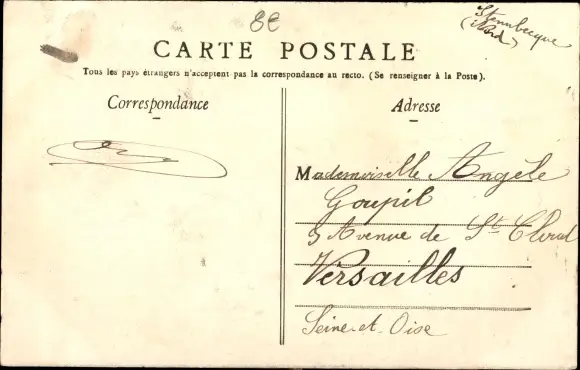 8€
Steenbecque
(Nord)
CARTE POSTALE
Tous les pays étrangers n'acceptent pas la correspondance au recto. (Se renseigner à la Poste).
Correspondance
Adresse
Mademoiselle Angèle
Goupil
5 Avenue de St Cloud
Versailles
Seine-et-Oise